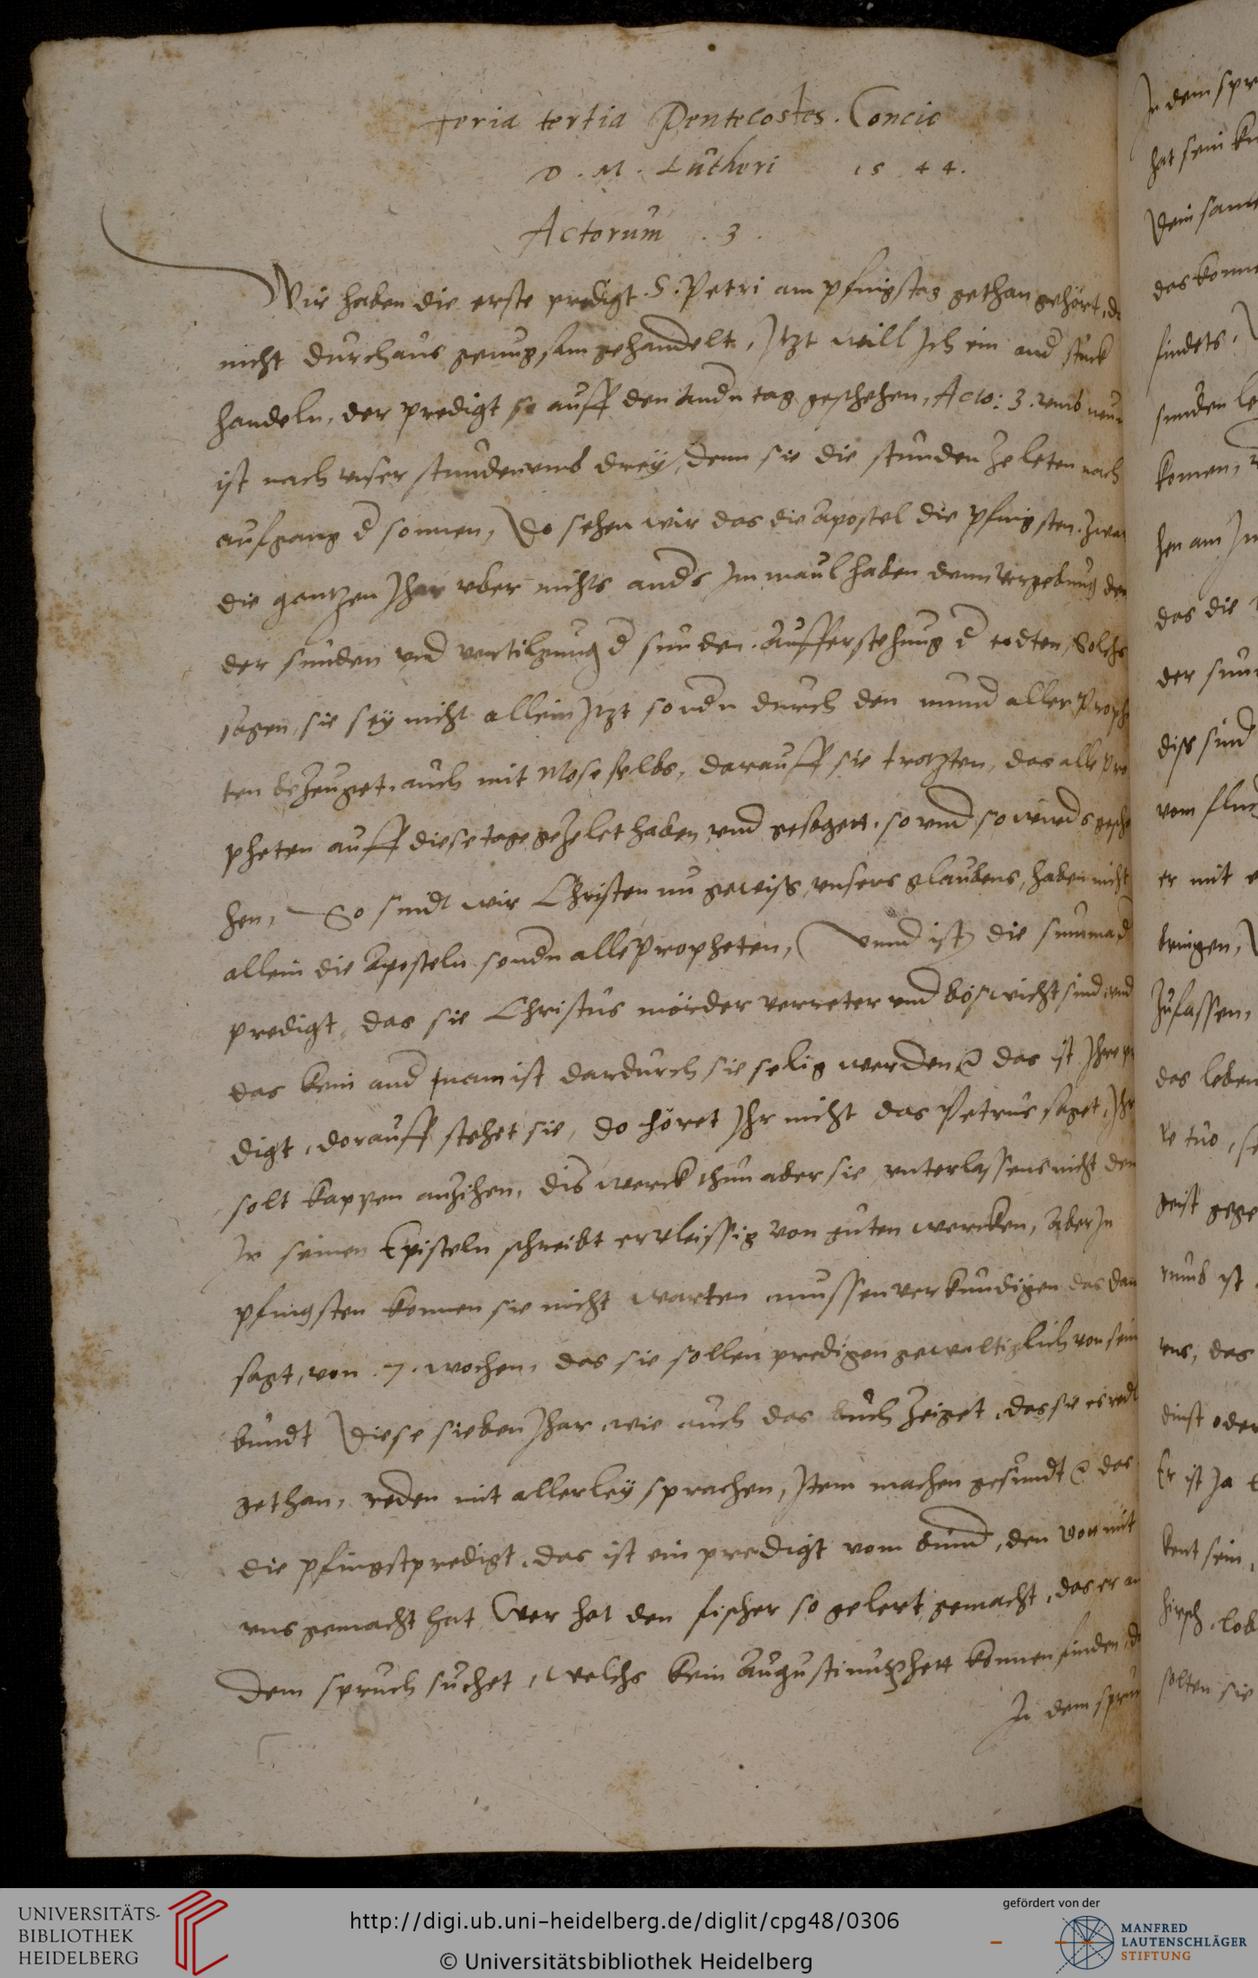 Feria tertia Pentecostes. Concio
D. M. Lutheri 1544.
Actorum .3.
Wir haben die erste predigt S. Petri am pfingstag gethan gehört,
nicht durchaus genugsam gehandelt, Jtzt will Jch ein and stuck
handeln, der predigt so auff den andn tag geschehen, Acto: 3. umb
ist nach unser stunden umb drey, denn sie die stunden zeleten nach
aufgang d sonnen, Do sehen wir das die Apostel die pfingsten
die gantzen Jhar uber nichts ands Jm maul haben denn vergebung
der sunden und vertilgung d sunden. Aufferstehung d todten, Solchs
sagen sie sey nicht allein Jtzt sondn durch den mund aller Proph
ten bezeuget, auch mit Mose selbs, darauff sie trotzten, das alle Pro
pheten auff diese tage gezelet haben und gesagett, so und so wirds gesche
hen, So sindt wir Christen nu gewiss unsers glaubens, haben nicht
allein die Aposteln sondn alle Propheten, Unnd ist die summa d
predigt, das sie Christus mörder verreter und böswicht sind und
das kein and nam ist dardurch sie selig werden das ist Jhre pre
digt, dorauff stehet sie, do höret Jhr nicht das Petrus saget, Jhr
solt kappen anzihen, dis werck thun aber sie unterlassens nicht den
Jn seinen Episteln schreibt er vleissig von guten wercken, Aber Jn
pfingsten konnen sie nicht warten mussen verkundigen das Dan
sagt, von .7. wochen, das sie sollen predigen gewaltiglich von sein
bundt Diese sieben Jhar, wie auch das buch zeiget, das sie es redl
gethan, reden mit allerley sprachen, Jtem machen gesundt das
die pfingstpredigt, das ist ein predigt vom bund, den Gott mit
uns gemacht hat Wer hat den fischer so gelert gemacht, das er an
dem spruch suchet, welchs kein Augustinus hett konnen finden,
Jn dem spruch
Jn dem spr
hat sein
Dein sam
das konn
findets,
sunden
komen,
hen am
das die
der sun
diss sind
vom fluch
er mit
bringen,
zulassen,
das leben
geist gege
rumb ist
uns, das
dinst oder
Er ist Ja
kent sein,
hirsch. lob
solten sie
UNIVERSITÄTS-
BIBLIOTHEK
HEIDELBERG
http://digi.ub.uni-heidelberg.de/diglit/cpg48/0306
© Universitätsbibliothek Heidelberg
gefördert von der
MANFRED
LAUTENSCHLÄGER
STIFTUNG